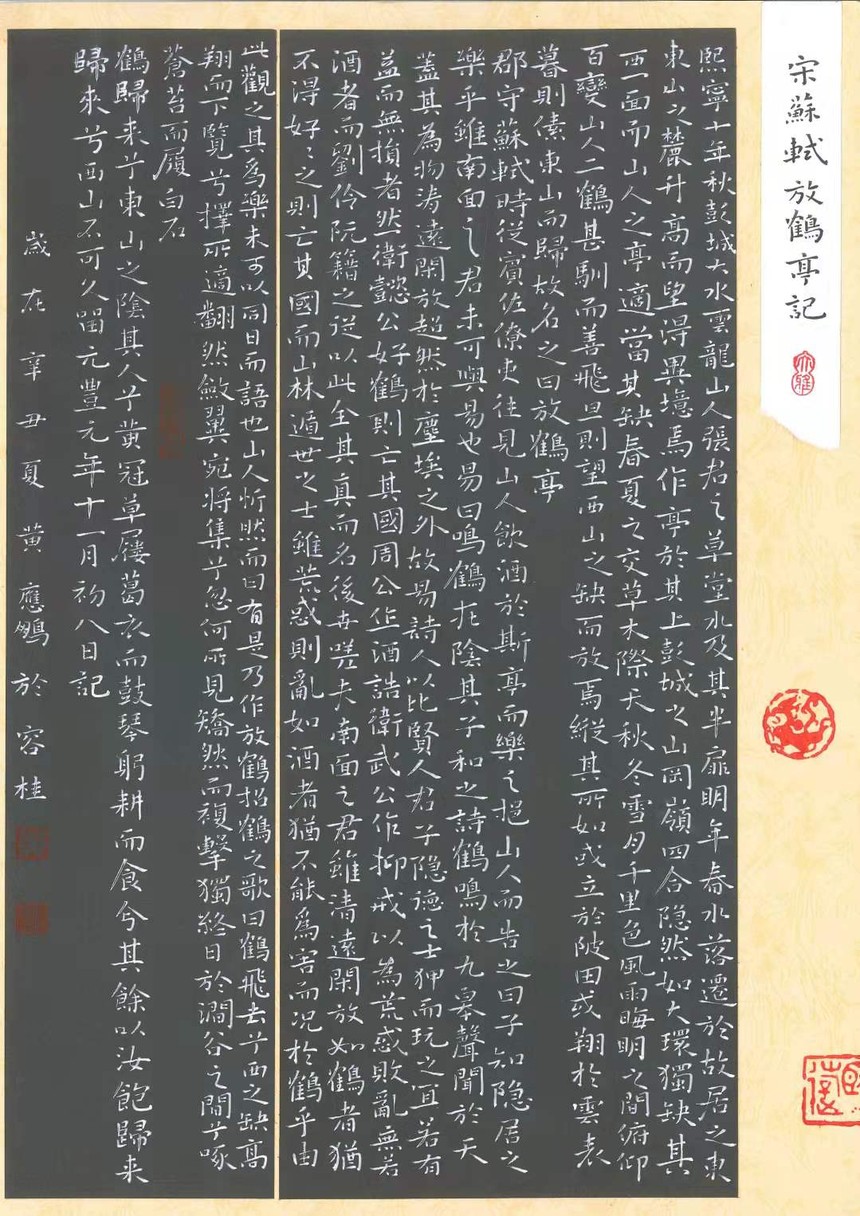 宋蘇軾放鶴亭記
熙寧十年秋彭城大水雲龍山人張君之草堂水及其半扉明年春水落遷於故居之東
東山之麓升高而望得異境焉作亭於其上彭城之山岡嶺四合隱然如大環獨缺其
西一面而山人之亭適當其缺春夏之交草木際天秋冬雪月千里色風雨晦明之間俯仰
百變山人二鶴甚馴而善飛旦則望西山之缺而放焉縱其所如或立於陂田或翔於雲表
暮則傃東山而歸故名之曰放鶴亭
郡守蘇軾時從賓佐僚吏往見山人飲酒於斯亭而樂之挹山人而告之曰子知隱居之
樂乎雖南面之君未可與易也易曰鳴鶴在陰其子和之詩鶴鳴於九皋聲聞於天
蓋其為物清遠閑放超然於塵埃之外故易詩人以比賢人君子隱德之士狎而玩之宜若有
益而無損者然衛懿公好鶴則亡其國周公作酒誥衛武公作抑戒以為荒惑敗亂無若
酒者而劉伶阮籍之徒以此全其真而名後世嗟夫南面之君雖清遠閑放如鶴者猶
不得好〻之則亡其國而山林遁世之士雖荒惑則亂如酒者猶不能為害而況於鶴乎由
此觀之其為樂未可以同日而語也山人忻然而曰有是乃作放鶴招鶴之歌曰鶴飛去兮西之缺高
翔而下覽兮擇所適翻然斂翼宛將集兮忽何所見矯然而複擊獨終日於澗谷之間兮啄
蒼苔而履白石
鶴歸來兮東山之陰其人兮黃冠草屨葛衣而鼓琴躬耕而食兮其餘以汝飽歸來
歸來兮西山不可久留元豐元年十一月初八日記
歲在辛丑夏黃應鵬於容桂